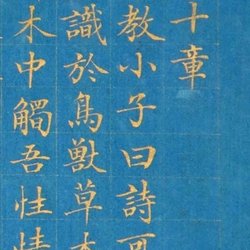 十章
教小子曰詩可
識於鳥獸草木
木中觸吾性情